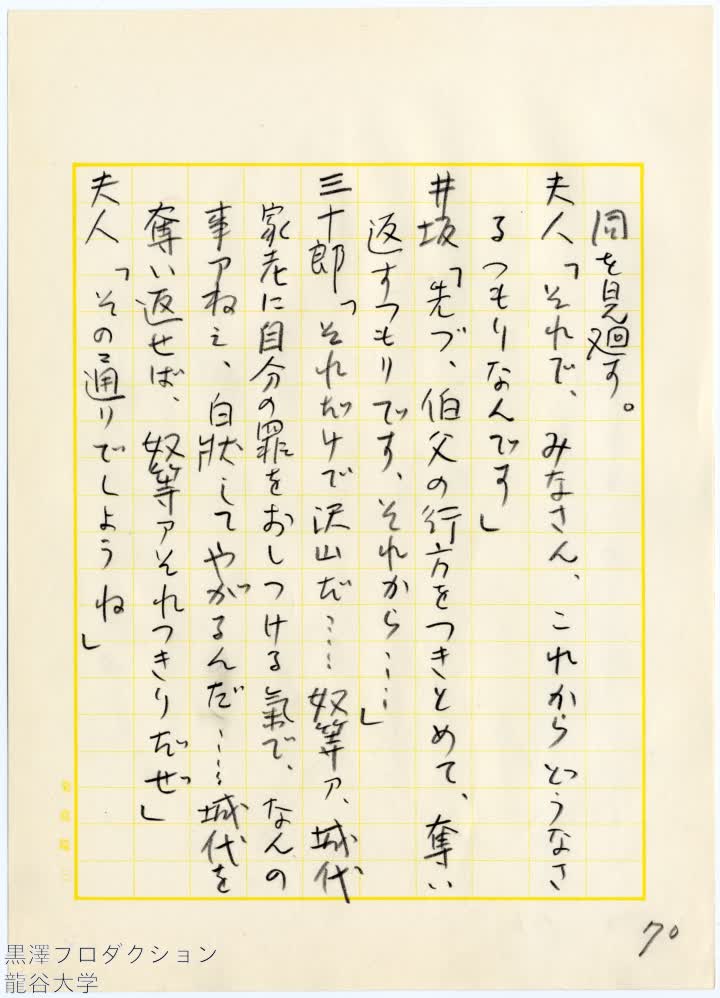 同を見廻す。
夫人「それで、みなさん、これからどうなさ
るつもりなんです」
井坂「先づ、伯父の行方をつきとめて、奪い
返すつもりです、それから……」
三十郎「それだけで沢山だ……奴等ァ、城代
家老に自分の罪をおしつける氣で、なんの
事アねえ、白状してやがるんだ……城代を
奪い返せば、奴等アそれつきりだぜ」
夫人「その通りでしようね」
70
黒澤プロダクション
龍谷大学